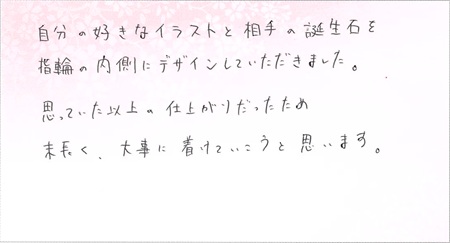 自分の好きなイラストと相手の誕生石を
指輪の内側にデザインしていただきました。
思っていた以上の仕上がりだったため
末長く、大事に着けていこうと思います。